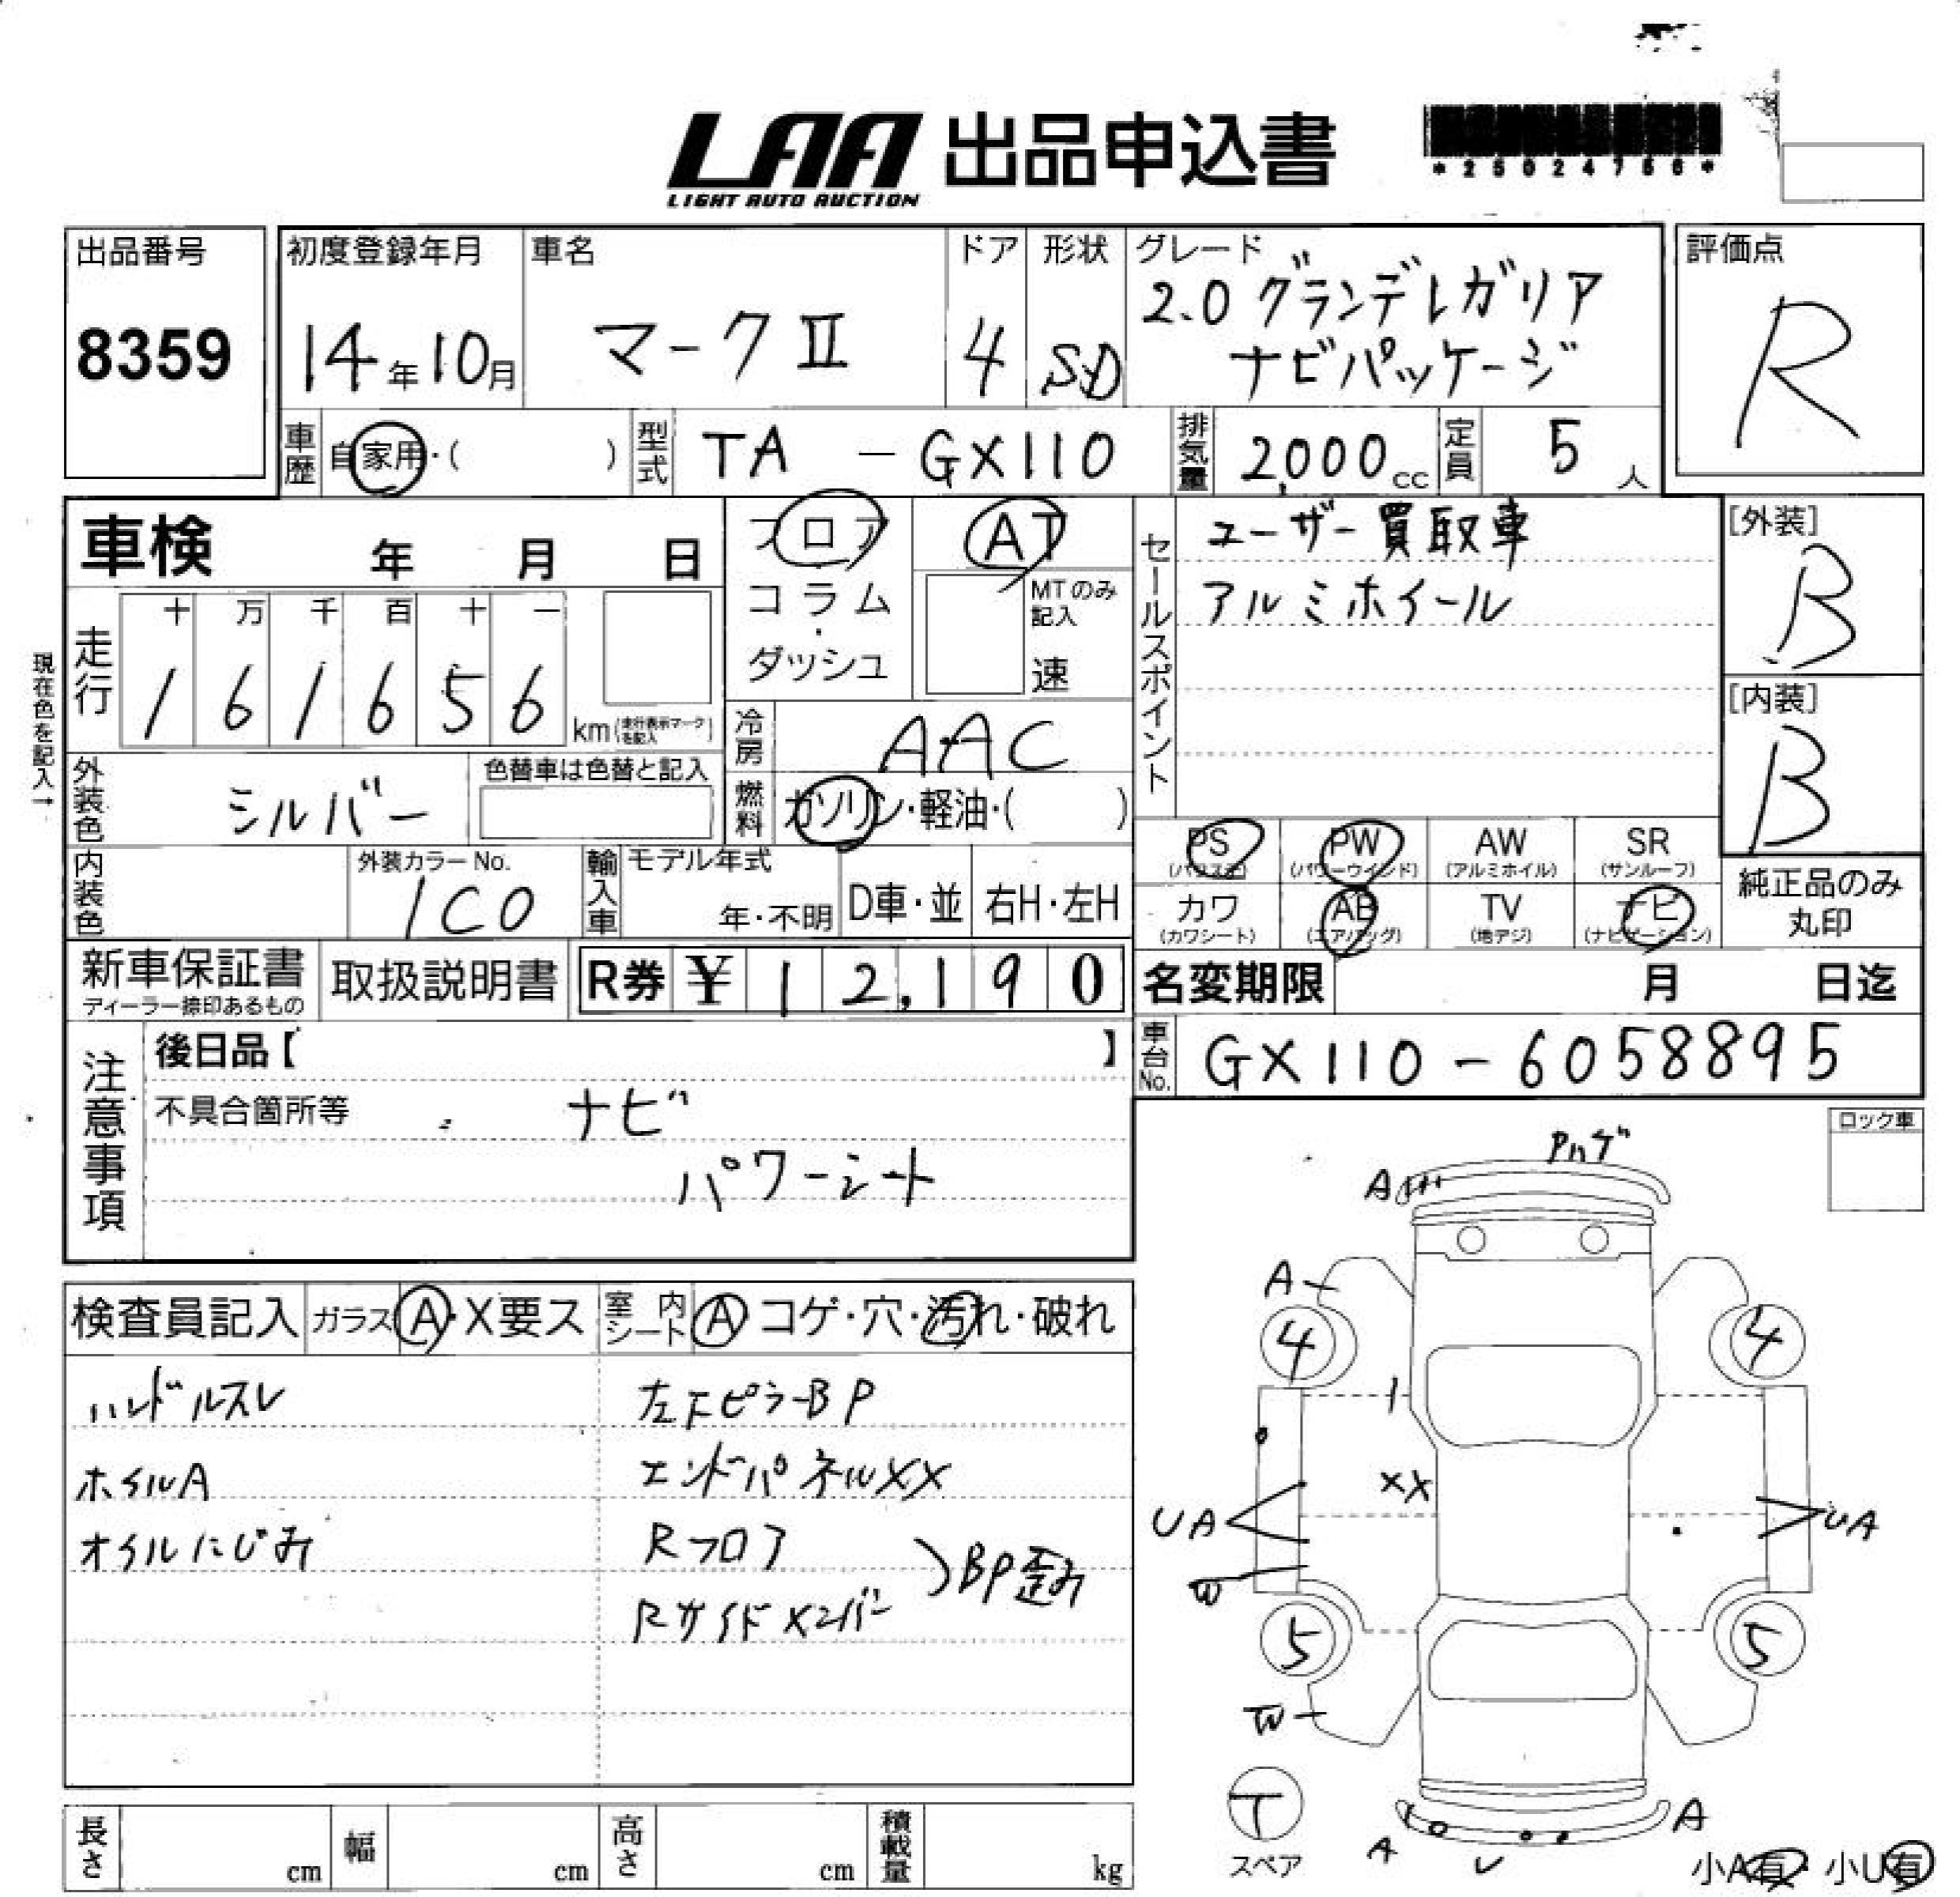 LAA 出品申込書
LIGHT AUTO AUCTION
*25024756*
出品番号
8359
初度登録年月
14年10月
車名
マークⅡ
ドア
4
形状
SD
グレード
2.0 グランデレガリア
ナビパッケージ
評価点
R
車歴 自家用・( )
型式 TA - GX110
排気量 2,000cc
定員 5人
車検 年 月 日
フロア
コラム・
ダッシュ
AT
MTのみ記入
速
セールスポイント
ユーザー買取車
アルミホイール
[外装]
B
[内装]
B
現在色を記入→
走行
十 万 千 百 十 一
1 6 1 6 5 6 km(走行表示マークを記入)
冷房 AAC
燃料 ガソリン・軽油・( )
外装色 シルバー
色替車は色替と記入
内装色
外装カラーNo.
1C0
輸入車
モデル年式
年・不明
D車・並
右H・左H
PS (パワステ)
PW (パワーウインド)
AW (アルミホイル)
SR (サンルーフ)
カワ (カワシート)
AB (エアバッグ)
TV (地デジ)
ナビ (ナビゲーション)
純正品のみ
丸印
新車保証書
ディーラー捺印あるもの
取扱説明書
R券 ¥12,190
名変期限 月 日迄
車台No. GX110-6058895
注意事項
後日品【 】
不具合箇所等 ナビ
パワーシート
ロック車
検査員記入
ガラス A・X要ス
室内シート A コゲ・穴・汚れ・破れ
ハンドルスレ
ホイルA
オイルにじみ
左Fピラ-BP
エンドパネルXX
Rフロア
Rサイドメンバー
BP歪み
Pハゲ
A
A
4
4
XX
UA
UA
W
5
5
W
T
スペア
A
A
U
小A有・小U有
長さ cm
幅 cm
高さ cm
積載量 kg